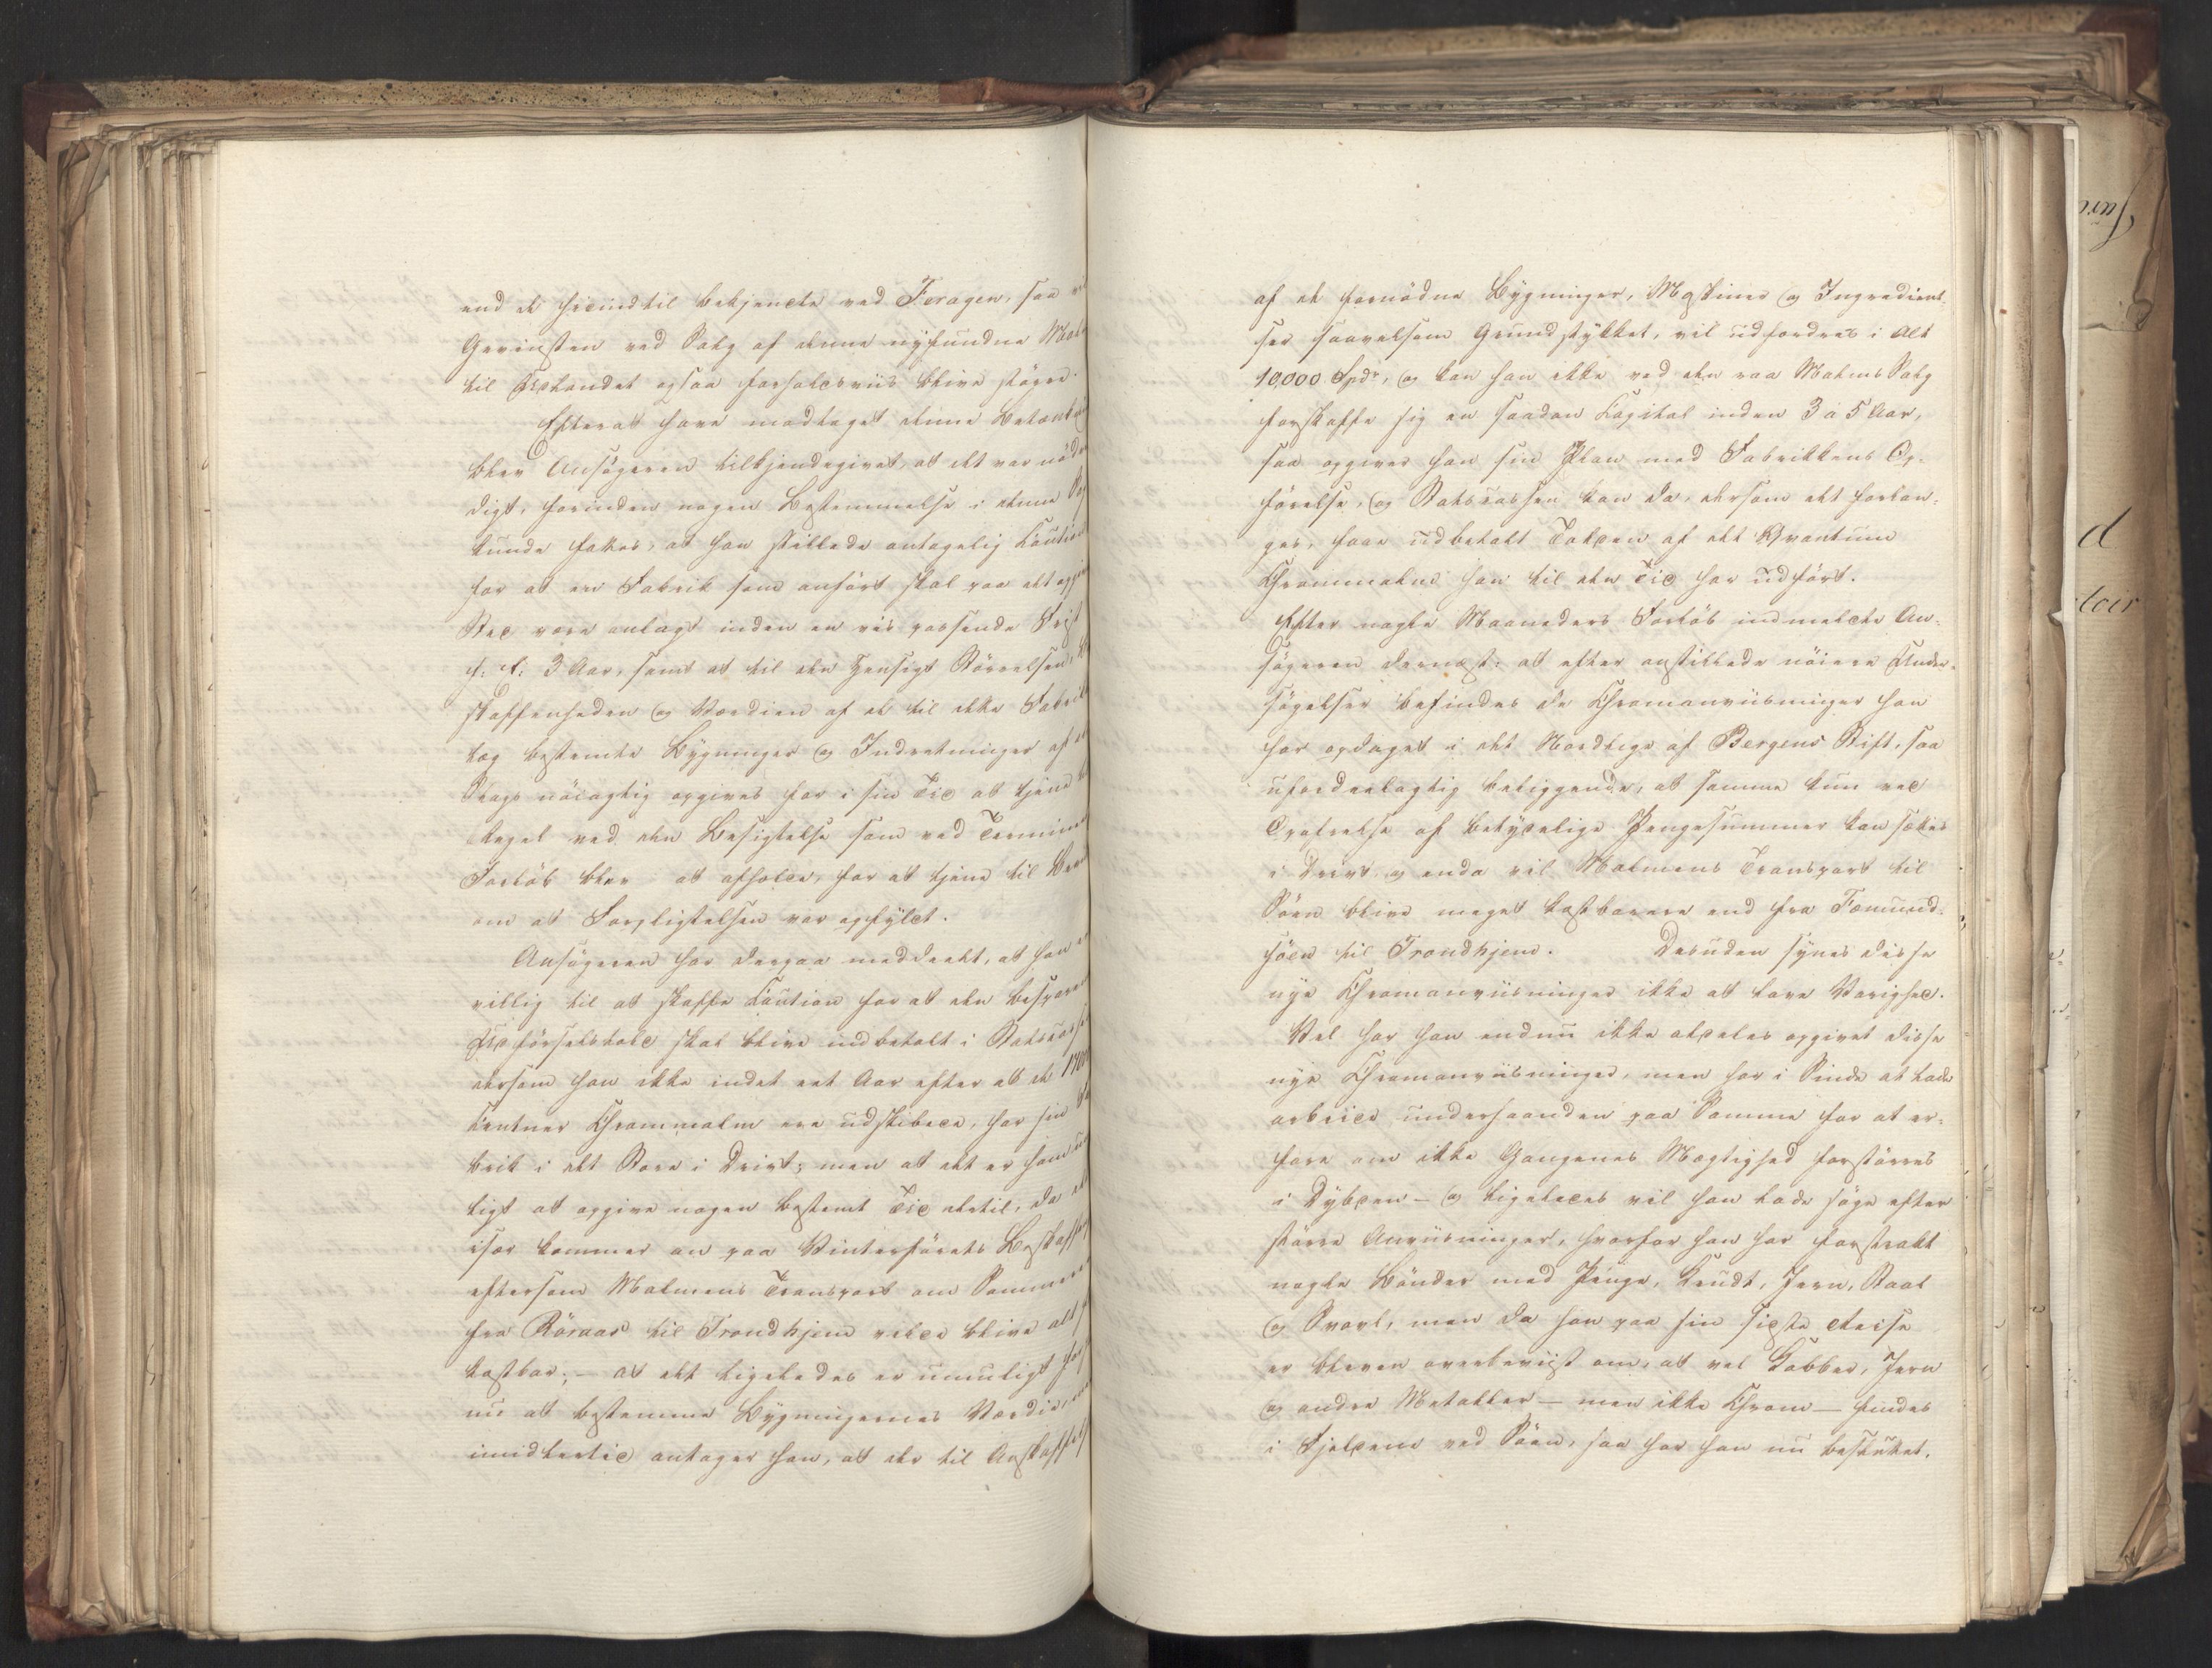 end de hidindtil bekjendte ved Feragen, saa
Gevinsten ved Salg af denne nyfundne
til Udlandet ogsaa forholdsviis blive större.
Efterat have modtaget denne
blev Ansögeren tilkjendegivet, at det var
digt, forinden nogen Bestemmelse i denne
kunde fattes, at han stillede antagelig
for at en Fabrik som anfört skal paa det
Sted være anlagt inden en vis passende Frist
f: E: 3 Aar, samt at til den Hensigt Störrelsen,
skaffenheden og Værdien af de til dette
læg bestemte Bygninger og Indretninger af
Slags nöiagtig opgives for i sin Tid at tjene
Regel ved den Besigtelse som ved
Forlöb blev at afholde, for at tjene til
om at Forpligtelsen var opfyldt.
Ansögeren har derpaa meddeelt, at han
villig til at skaffe Caution for at den
Udförselstold skal blive indbetalt i
dersom han ikke indet eet Aar efter at de 1700
Centner Chrommalm ere udskibede, har sin
brik i det Store i Drivt; men at det er ham
ligt at opgive nogen bestemt Tid dertil, da
især kommer an paa Vinterförets
eftersom Malmens Transport om
fra Röraas til Trondhjem vilde blive
kostbar; – at det ligeledes er umuligt
nu at bestemme Bygningernes Værdie,
imidlertid antager han, at der til
af de fornödne Bygninger, Maskiner og Ingredient-
ser saavelsom Grundstykket, vil udfordres i Alt
10,000 Spdr, og kan han ikke ved den raa Malms Salg
forskaffe sig en saadan Capital inden 3 à 5 Aar,
saa opgiver han sin Plan med Fabrikkens Op-
förelse, og Statscassen kan da, dersom det forlan-
ges, faae udbetalt Tolden af det Qvantum
Chrommalm han til den Tid har udfört.
Efter nogle Maaneders Forlöb indmeldte An-
sögeren dernæst: at efter anstillede nöiere Under-
sögelser befindes de Chromanviisninger han
har opdaget i det Nordlige af Bergens Stift, saa
ufordeelagtig beliggende, at samme kun ved
Opofrelse af betydelige Pengesummer kan sættes
i Drivt, og enda vil Malmens Transport til
Söen blive meget kostbarere end fra Fæmund-
söen til Trondhjem. Desuden synes disse
nye Chromanviisninger ikke at love Varighed.
Vel har han endnu ikke aldeles opgivet disse
nye Chromanviisninger, men har i Sinde at lade
arbeide underhaanden paa Samme for at er-
fare om ikke Gangenes Mægtighed forstörres
i Dybden – og ligeledes vil han lade söge efter
större Anviisninger, hvorfor han har forstrakt
nogle Bönder med Penge, Krudt, Jern, Staal
og Svovl, men da han paa sin sidste Reise
er bleven overbeviist om, at vel Kobber, Jern
og andre Metaller – men ikke Chrom – findes
i Fjeldene ved Söen, saa har han nu besluttet,